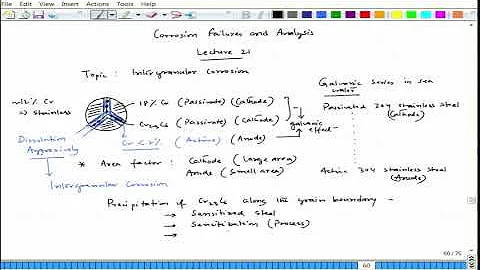 File Edit View Insert Actions Tools Help
Corrosion Failures and Analysis
Lecture 21
Topic : Intergranular Corrosion
Galvanic Series in sea water
~12% Cr ⇒ Stainless
18% Cr (Passivate) (Cathode)
Cr23C6 (Passivate) (Cathode)
Cr < 2% (Active) (Anode)
galvanic effect
Passivated 304 stainless steel (Cathode)
Active 304 stainless steel (Anode)
Dissolution Aggressively
Intergranular Corrosion
* Area factor : Cathode (Large area)
Anode (Small area)
Precipitation of Cr23C6 along the grain boundary -
→ Sensitized steel
→ Sensitization (Process)
→
60
60 / 75